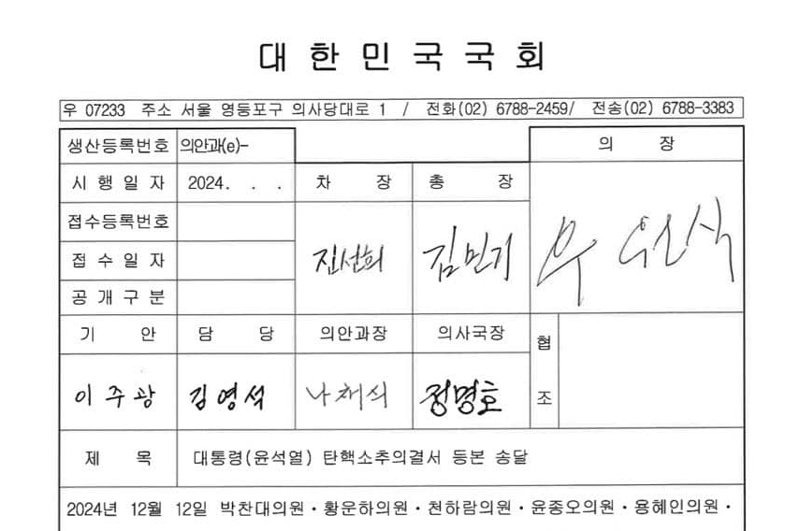 대 한 민 국 국 회
우 07233 주소 서울 영등포구 의사당대로 1 / 전화(02) 6788-2459/ 전송(02) 6788-3383
생산등록번호 의안과(e)- 의 장
시 행 일 자 2024. . . 차 장 총 장
접수등록번호
진선희 김민기 우원식
접 수 일 자
공 개 구 분
기 안 담 당 의안과장 의사국장 협 조
이주광 김영석 나채식 정명호
제 목 대통령(윤석열) 탄핵소추의결서 등본 송달
2024년 12월 12일 박찬대의원·황운하의원·천하람의원·윤종오의원·용혜인의원·